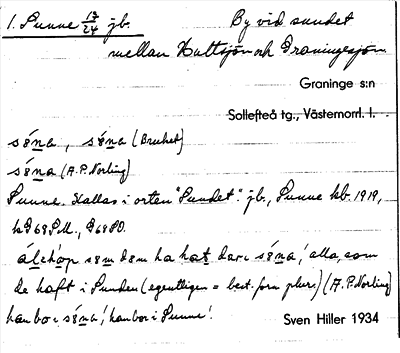 1. Sunne 13/24 jb. By vid sundet
mellan Hultsjön och Graningesjön
Graninge s:n
Sollefteå tg., Västernorrl. l.
sǿna, sǿna (Bruket)
sǿna (A.P. Norling)
Sunne. Kallas i orten "Sundet". jb., Sunne kb. 1919,
sǝm dǝm ha hat dar i sǿna', alla, som
de haft i Sunden (egentligen = best. form plur.) (A.P. Norling)
han bor i sǿna', han bor i Sunne'.
Sven Hiller 1934